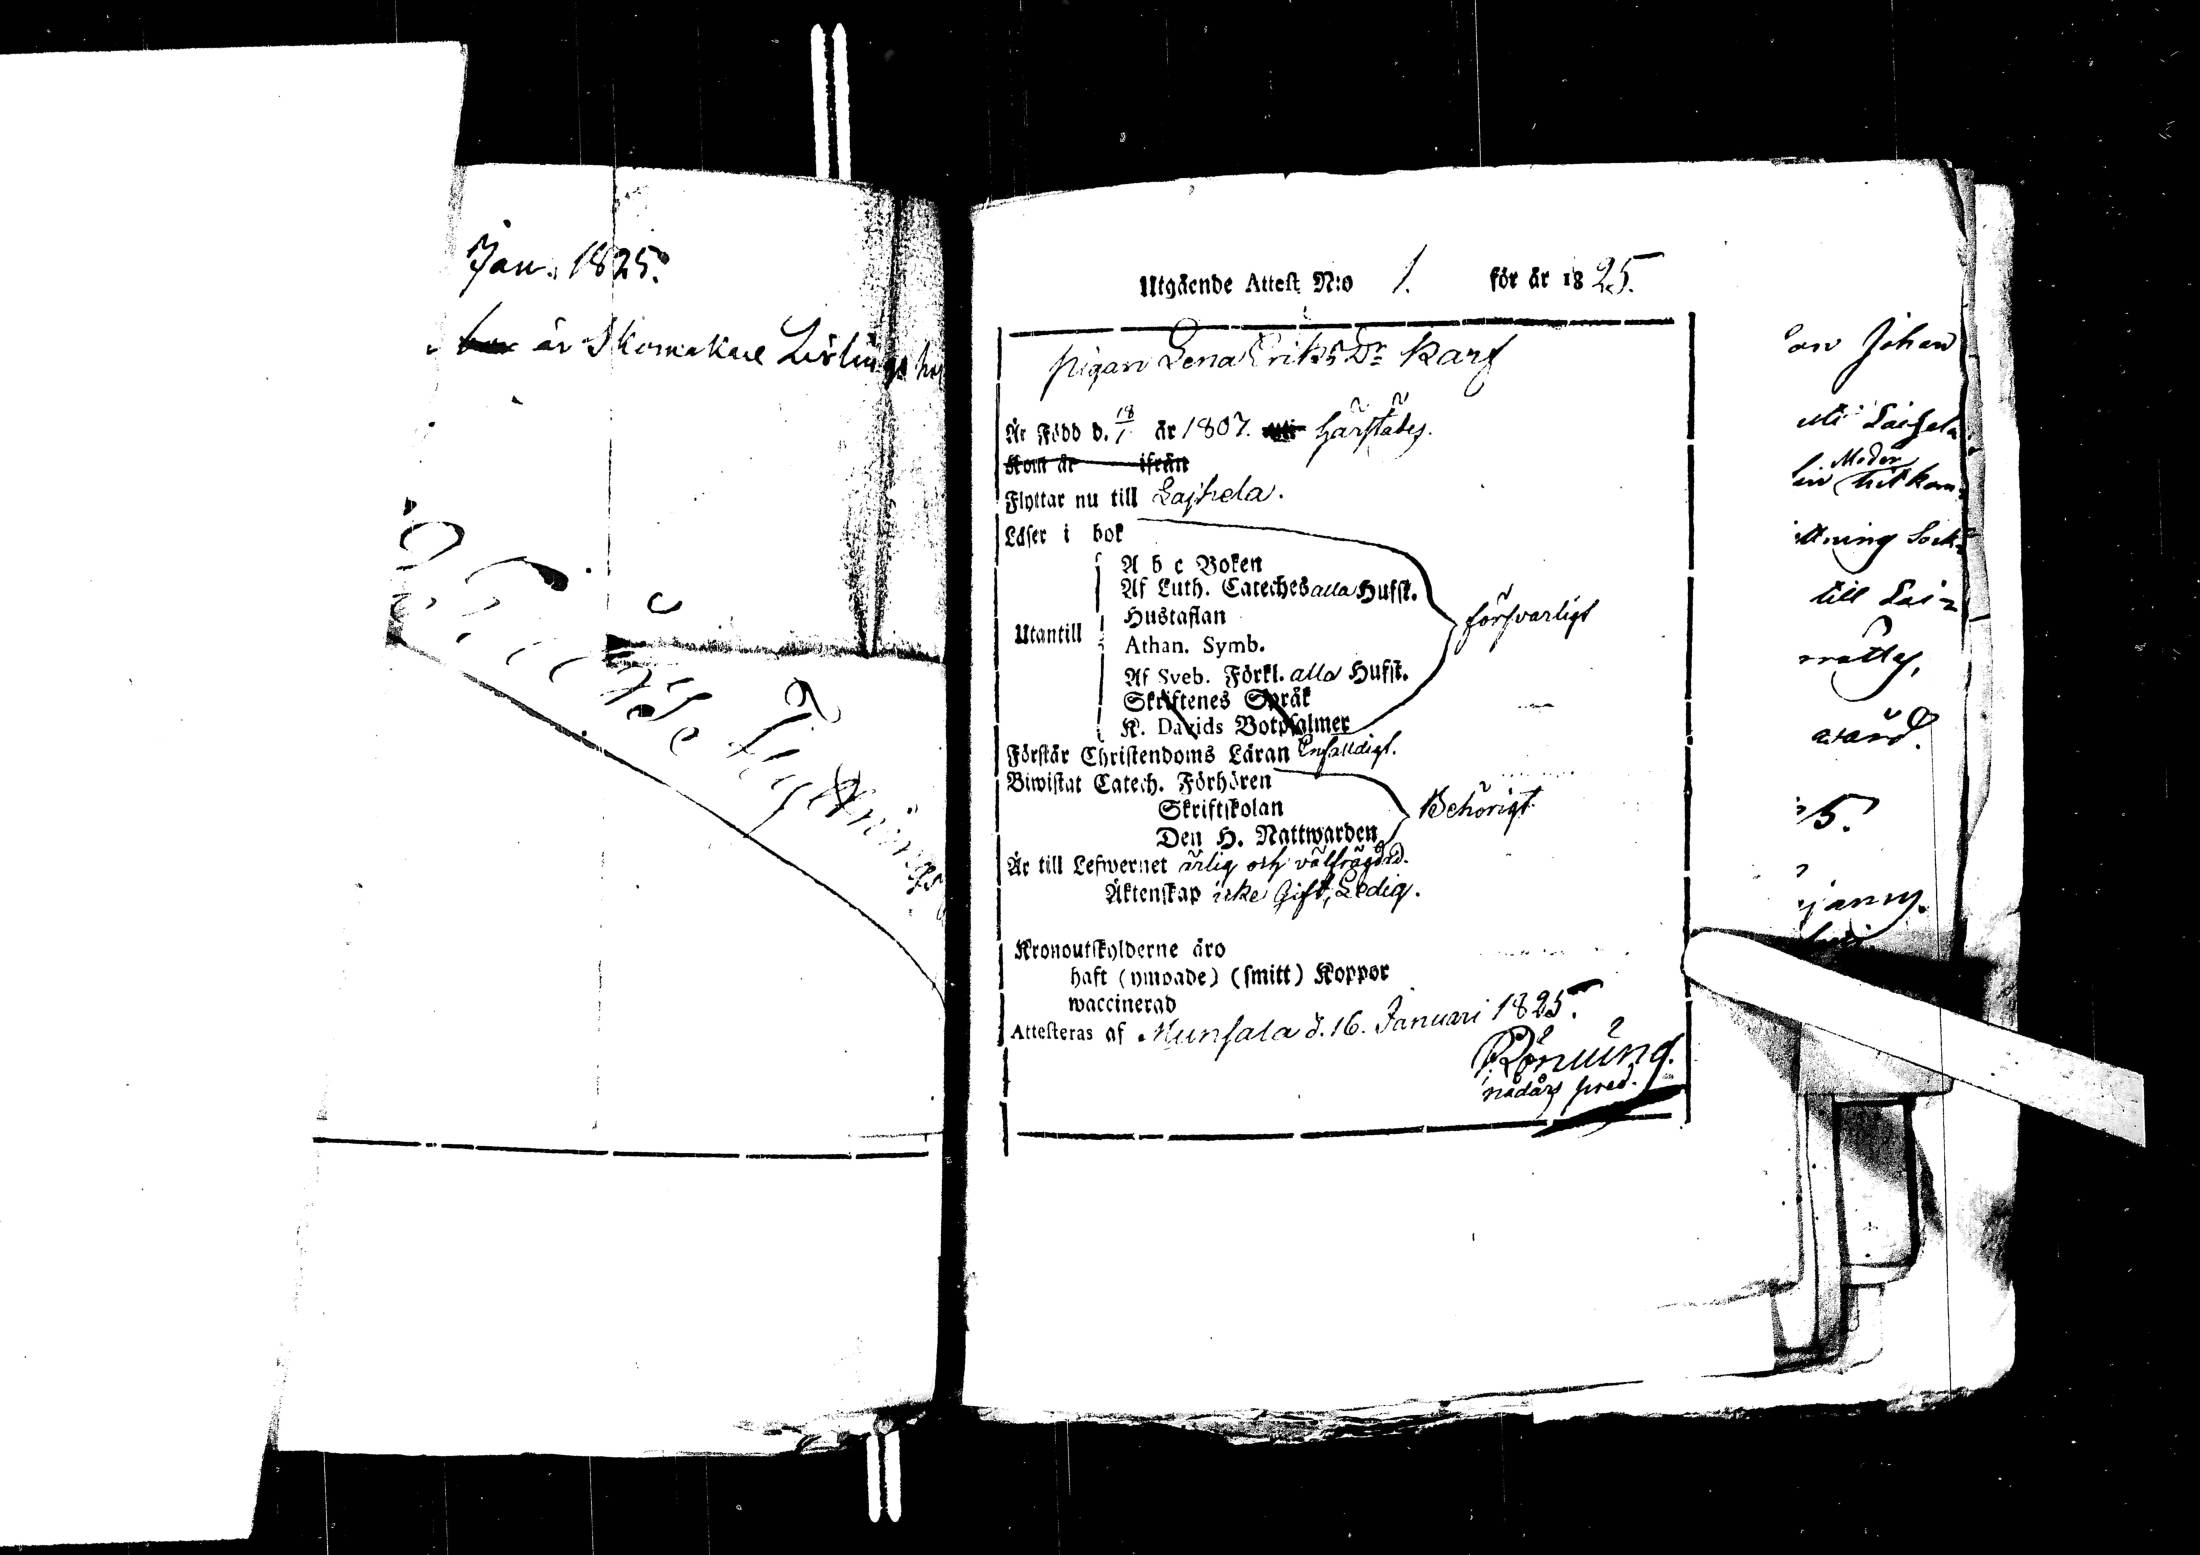 Jan. 1825.
är Skomakare
Utgående Attest N:o 1. för år 1825.
pigan Lena Eriks Dr Karf
Är Född d. 18/1 år 1807. härstädes.
Kom år ifrån
Flyttar nu till Lajhela.
Läser i bok
A b c Boken
Af Luth. Cateches alla Hufst.
Hustaflan
Utantill
Athan. Symb.
försvarligt
Af Sveb. Förkl. alla Hufst.
Skriftenes Språk
K. Davids Botpsalmer
Förstår Christendoms Läran Enfalldigt.
Biwistat Catech. Förhören
Skriftskolan
Behörigt
Den H. Nattwarden
Är till Lefwernet ärlig och välfrägdad.
Äktenskap icke Gift, Ledig.
Kronoutskylderne äro
haft (ympade) (smitt) Koppor
waccinerad
Attesteras af Munsala d. 16. Januari 1825.
Rönning.
nådårs pred.
on Johan
Moder
hitkom
ttning Sock
till Lai
5.